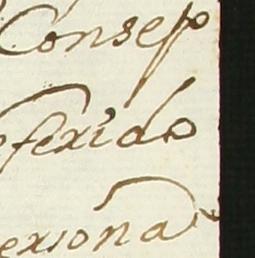 Consejo
eferido
ersona